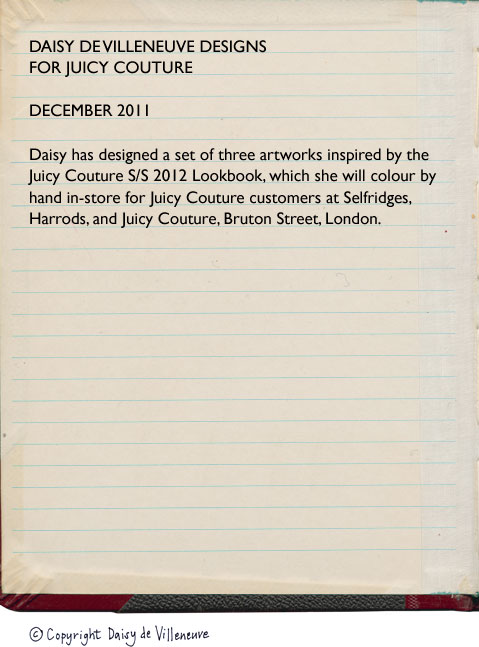 DAISY DE VILLENEUVE DESIGNS
FOR JUICY COUTURE
DECEMBER 2011
Daisy has designed a set of three artworks inspired by the
Juicy Couture S/S 2012 Lookbook, which she will colour by
hand in-store for Juicy Couture customers at Selfridges,
Harrods, and Juicy Couture, Bruton Street, London.
© Copyright Daisy de Villeneuve